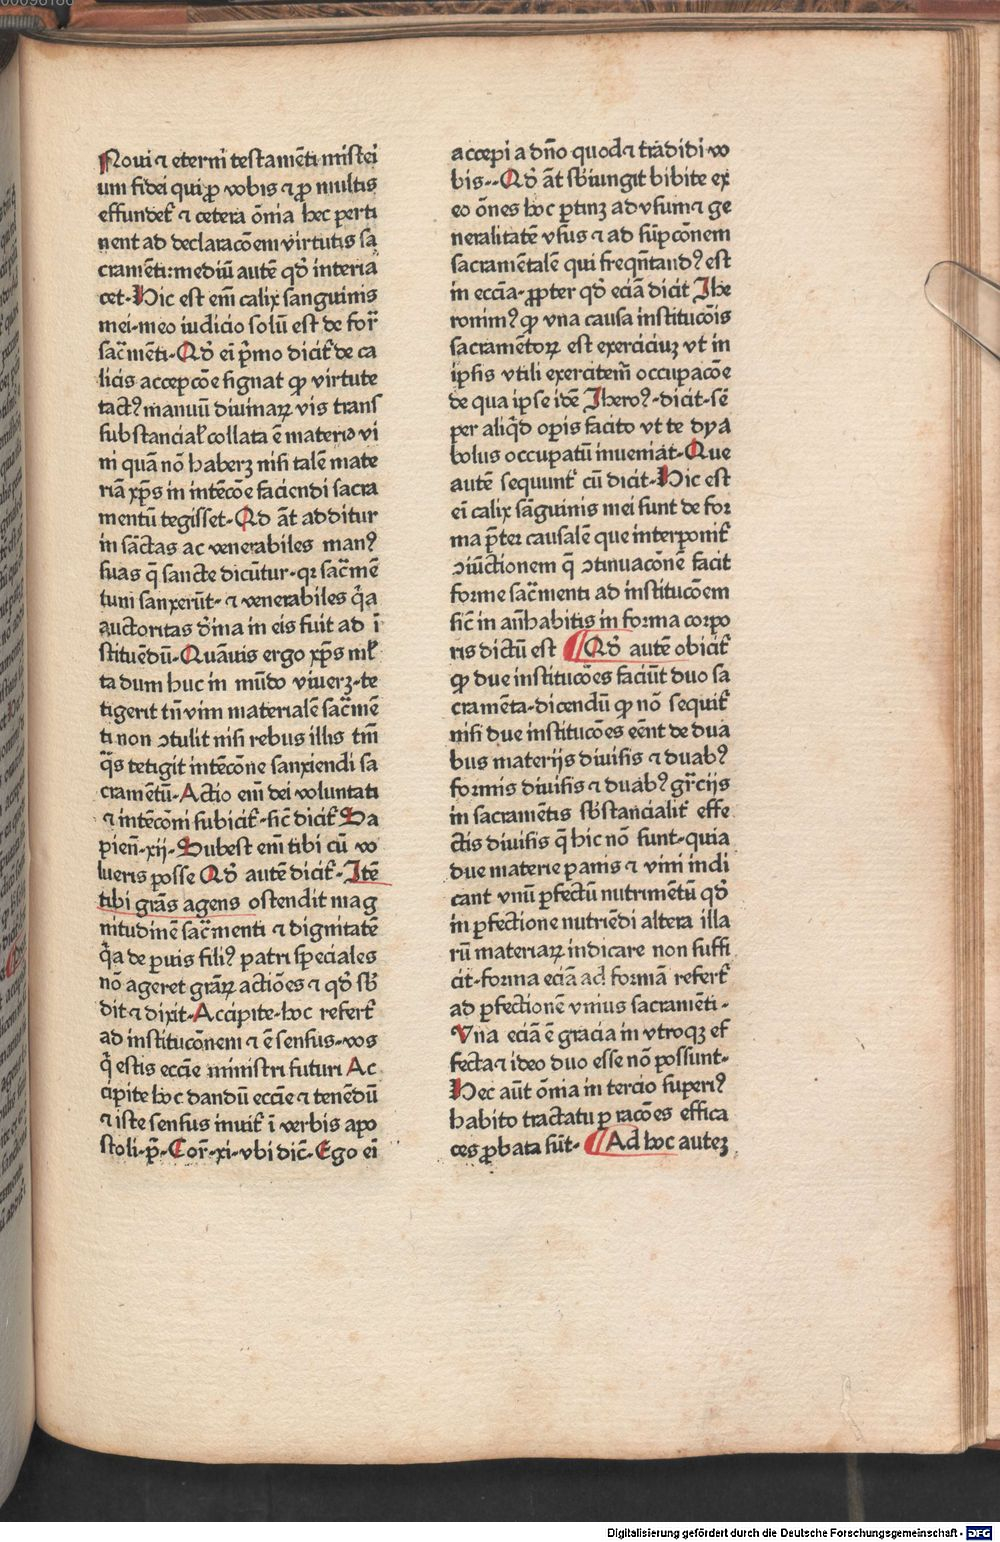 Noui ⁊ eterni testamēti misteri
um fidei qui ꝓ vobis ⁊ ꝓ multis
effundet᷑ ⁊ cetera ōmia hec perti
nent ad declaracōem virtutis sa
cramēti: mediū autē qd̄ interia
cet· Hic est em̄ calix sanguinis
mei· meo iudicio solū est de for̄
sac̄menti· Qd̄ ei p̄mo dicit᷑ de ca
licis accepcōe signat ꝙ virtute
tactꝰ manuū diuinaꝝ vis trans
substancial᷑ collata ē materie vi
ni quā nō haberꝫ nisi talē mate
riā xp̄s in intēcōe faciendi sacra
mentū tegisset· Qd̄ āt additur
in sāctas ac venerabiles manꝰ
suas q̄ sancte dicūtur· qꝛ sac̄mē
tum sanxerūt· ⁊ venerabiles q̄a
auctoritas d̄ina in eis fuit ad ī
stituēdū· Quāuis ergo xp̄s ml᷑
ta dum huc in mūdo viuerꝫ· te
tigerit tn̄ vim materialē sac̄mē
ti non ↄtulit nisi rebus illis tm̄
q̄s tetigit intēcōne sanxiendi sa
cramētū· Actio em̄ dei voluntati
⁊ intēcōni subicit᷑· sic̄ dicit᷑ Sa
pien̄· xij· Subest em̄ tibi cū vo
lueris posse Qd̄ autē dicit᷑· Itē
tibi grās agens ostendit mag
nitudinē sac̄menti ⁊ dignitatē
q̄a de ꝑuis filiꝰ patri speciales
nō ageret grāꝝ actiōes ⁊ qd̄ sb̄
dit ⁊ dixit· Accipite· hoc refert᷑
ad institucōnem ⁊ ē sensus· vos
q̄ estis eccīe ministri futuri Ac
cipite hoc dandū eccīe ⁊ tenēdū
⁊ iste sensus inuit᷑ ī verbis apo
stoli· p̄· Cor̄· xi· vbi dic̄· Ego ei
accepi a dn̄o quod ⁊ tradidi vo
bis·· Qd̄ āt sb̄iungit bibite ex
eo ōnes hoc ꝑtinꝫ ad vsum ⁊ ge
neralitatē vsus ⁊ ad sūpcōnem
sacramētalē qui freqn̄tandꝰ est
in eccīa· ꝓpter qd̄ eciā dicit Ihe
ronimꝰ ꝙ vna causa institucōis
sacramētoꝝ est exerciciuꝫ vt in
ipsis vtili exercitem̄ occupacōe
de qua ipse idē Iheroꝰ· dicit· sē
per aliq̄d opis facito vt te dya
bolus occupatū inueniat· Que
autē sequunt᷑ cū dicit· Hic est
ei calix sāguinis mei sunt de for
ma p̄ter causalē que interponit᷑
ↄiūctionem q̄ ↄtinuacōnē facit
forme sac̄menti ad institucōem
sic̄ in an̄habitis in forma corpo
ris dictū est ¶ Qd̄ autē obicit᷑
ꝙ due institucōes faciūt duo sa
cramēta· dicendū ꝙ nō sequit᷑
nisi due institucōes eēnt de dua
bus materijs diuisis ⁊ duabꝰ
formis diuisis ⁊ duabꝰ gr̄cijs
in sacramētis sb̄stancialit᷑ effe
ctis diuisis q̄ hic nō sunt· quia
due materie panis ⁊ vini indi
cant vnū ꝑfectū nutrimētū qd̄
in ꝑfectione nutriēdi altera illa
rū materiaꝝ indicare non suffi
cit· forma eciā ad formā refert᷑
ad ꝑfectionē vnius sacramēti·
Vna eciā ē gracia in vtroqꝫ ef
fecta ⁊ ideo duo esse nō possunt·
Hec aūt ōmia in tercio superiꝰ
habito tractatu ꝑ racōes effica
ces ꝓbata sūt· ¶ Ad hoc auteꝫ
Digitalisierung gefördert durch die Deutsche Forschungsgemeinschaft - DFG